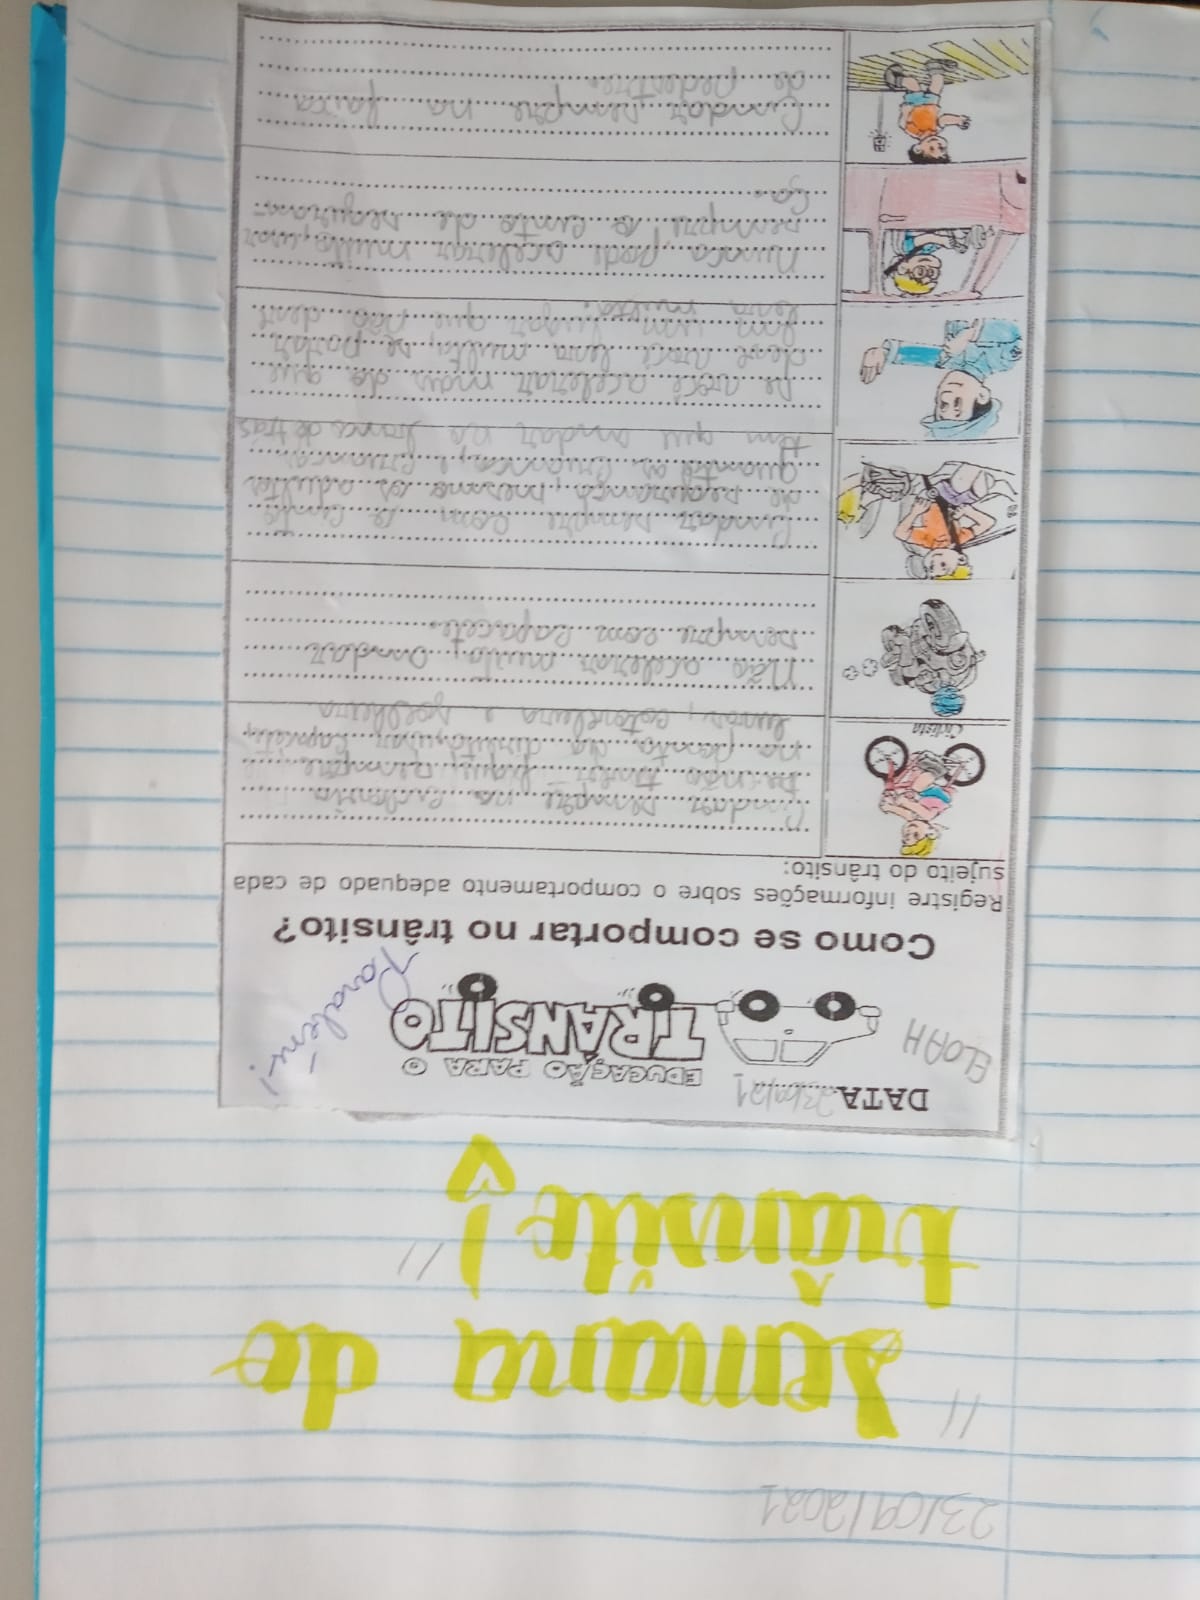 23/09/2021
"Semana de
trânsito!"
DATA 23/09/21
ELOAH
EDUCAÇÃO PARA O
TRÂNSITO
Parabéns!
Como se comportar no trânsito?
Registre informações sobre o comportamento adequado de cada
sujeito do trânsito:
Ciclista
Andar sempre na ciclovia
se não tiver fique sempre
na ponta da direita, usar capacete,
luvas, cotoveleira e joelheira.
Não acelerar muito, andar
sempre com capacete.
Andar sempre com o cinto
de segurança, mesmo os adultos
quanto as crianças, crianças
tem que andar no banco de trás
Se você acelerar mais do que
deve você leva multa, se parar
em um lugar que não deve
leva multa.
Nunca pode acelerar muito, usar
sempre o cinto de seguran-
ça.
Andar sempre na faixa
de pedestre.